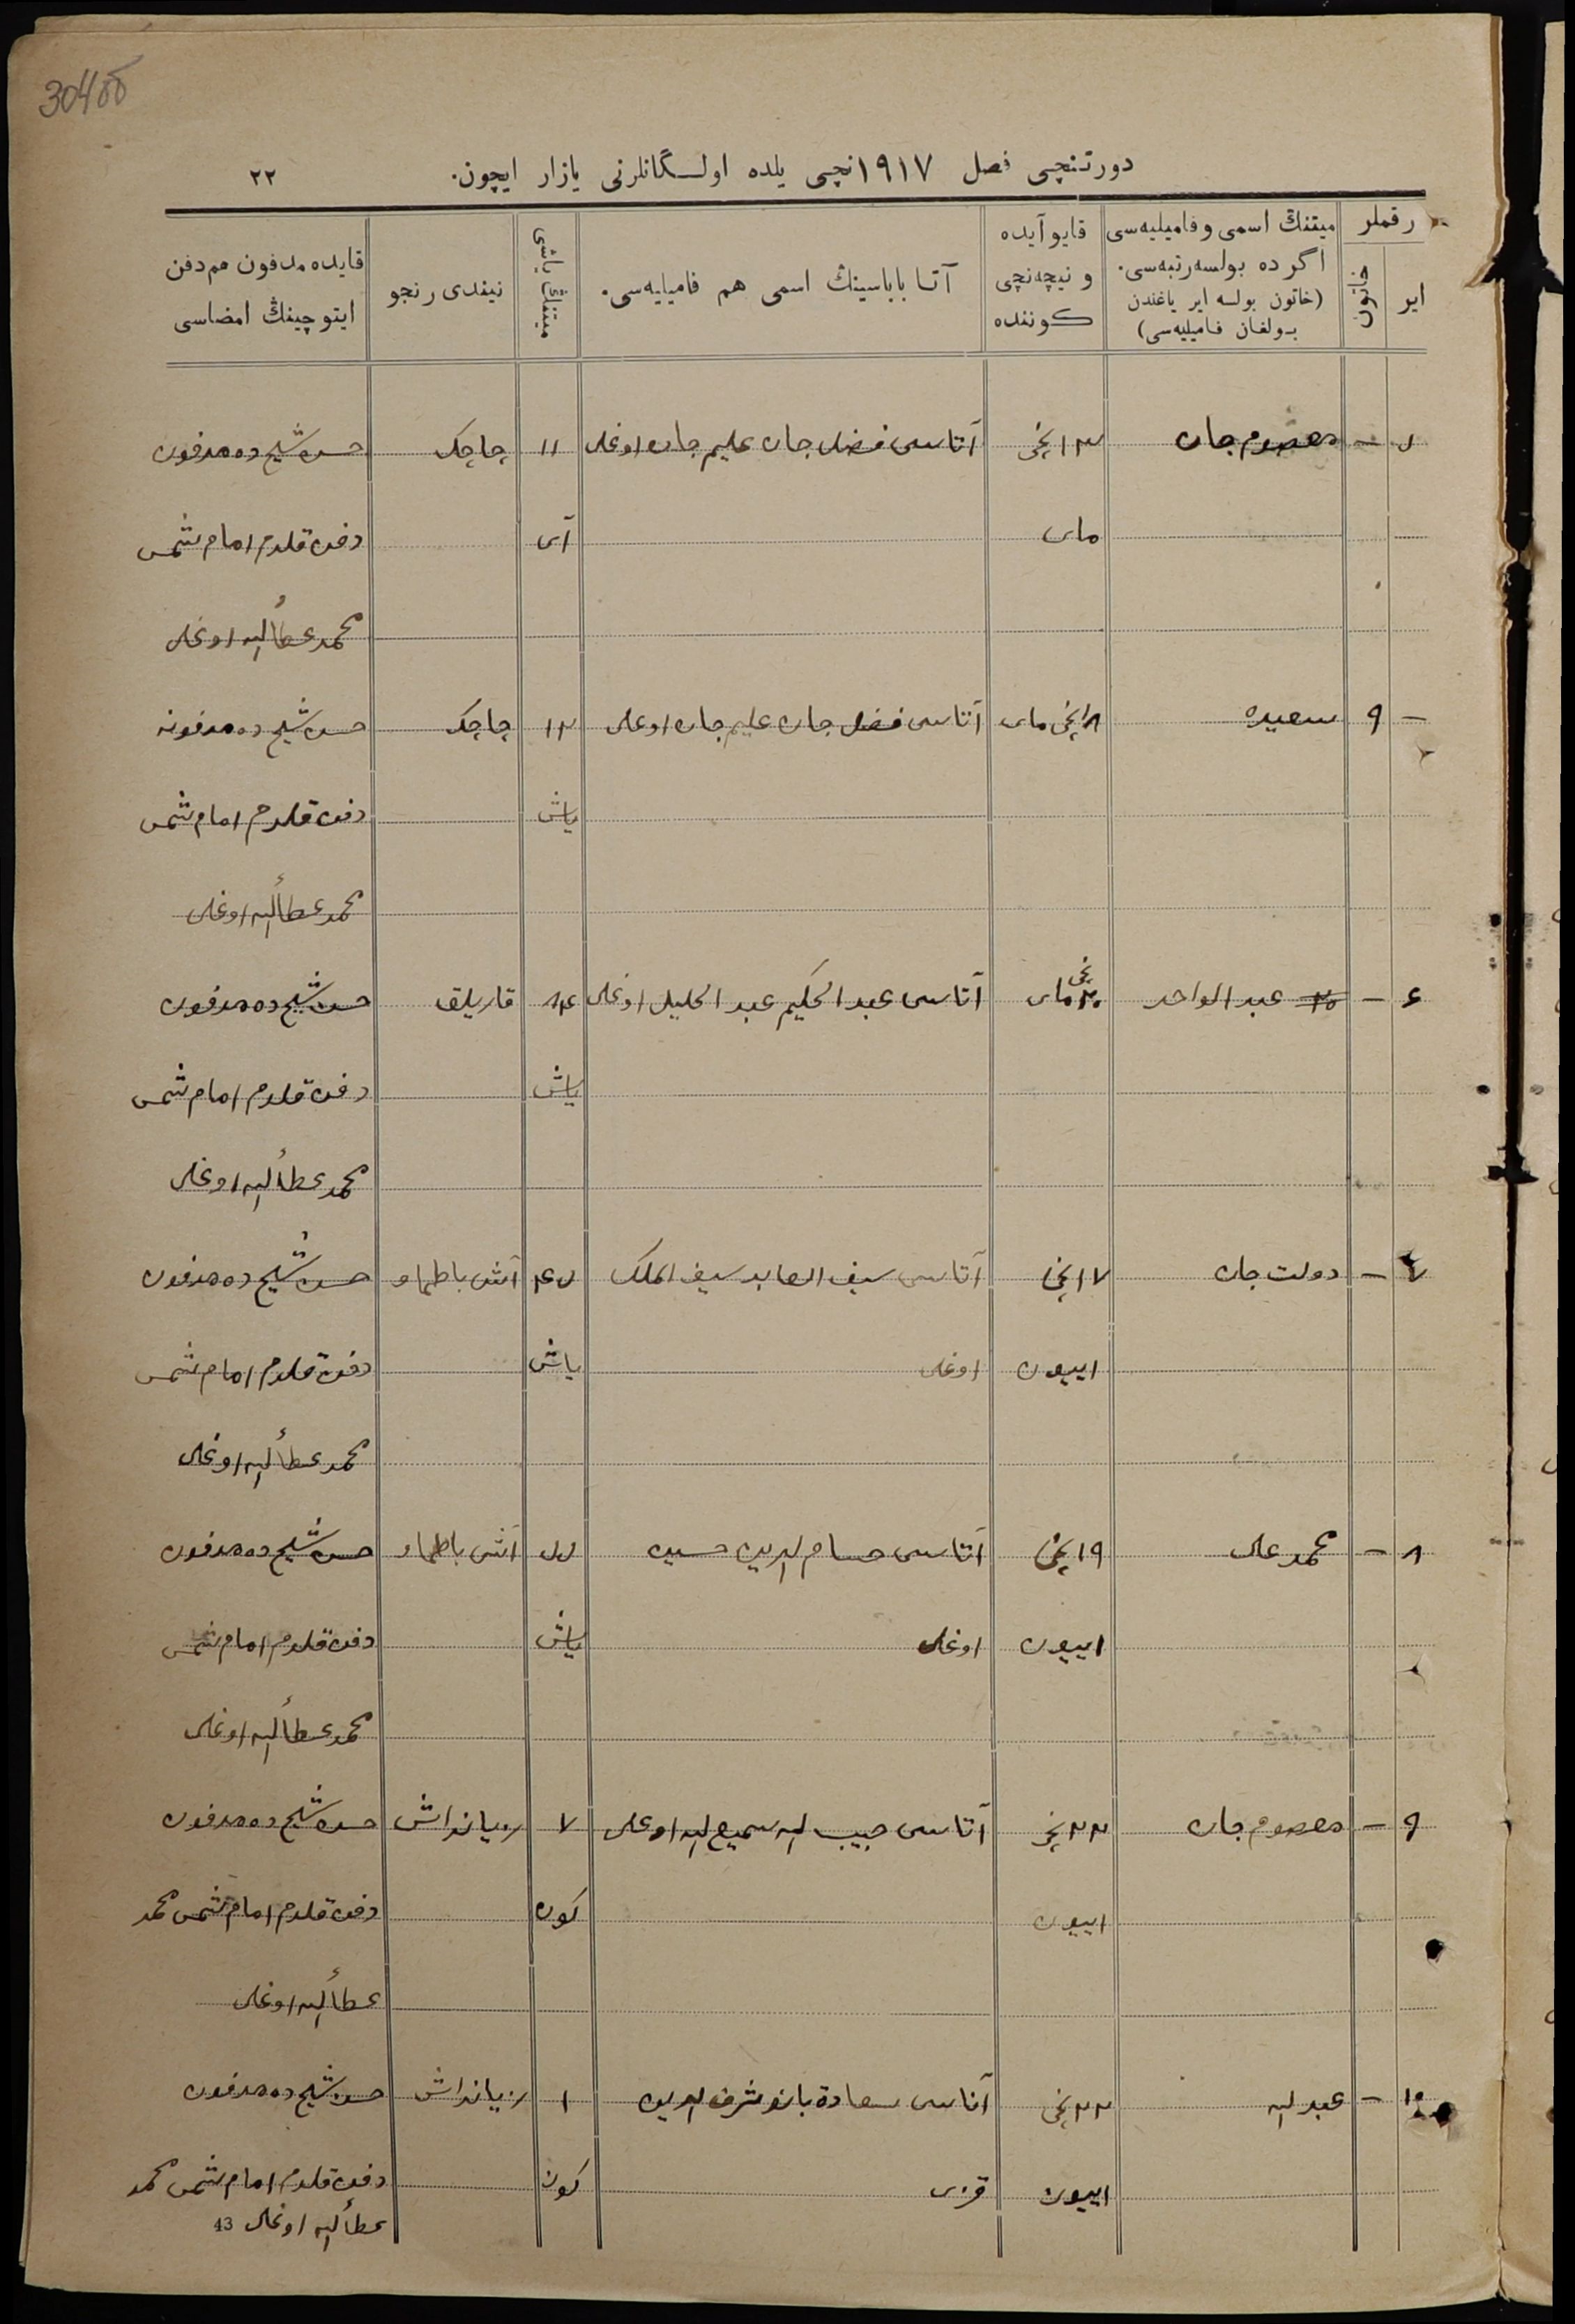 304об
دورتنچی فصل ۱۹۱۷نچی یلده اولـگانلرنی یازار ایچون. ۲۲
رقملر
ایر
خاتون
میتنڭ اسمی و فامیلیه‌سی
اگر ده بولسه رتبه‌سی.
(خاتون بولسه ایر یاغندن
بـولغان فـامیلیه‌سی)
قایو آیده
و نیچه‌نچی
کـوننده
آتـا بـاباسینڭ اسمی هم فامیلیه‌سی.
میتنڭ یاشی
نیندی رنجو
قایده مدفون هم دفن
ایتوچینڭ امضاسی
۵ – معصوم جان ۱۳نچی آتاسی فضل جان علیم جان اوغلی ۱۱ چاچک حسن شیخ ده مدفون
مای آی دفن قلدم امام شمس
محمد عطأالله اوغلی
– ۹ سعیده ۱۸نچی مای آتاسی فضل جان علیم جان اوغلی ۱۲ چاچک حسن شیخ ده مدفونه
یاش دفن قلدم امام شمس
محمد عطأالله اوغلی
۶ – عبد الواحد ۲۰نچی مای آتاسی عبد الحکیم عبد الجلیل اوغلی ۸۴ قاریلق حسن شیخ ده مدفون
یاش دفن قلدم امام شمس
محمد عطأالله اوغلی
۷ – دولت جان ۱۷نچی آتاسی سیف العابد سیف الملک ۴۵ آش باطماو حسن شیخ ده مدفون
اییون اوغلی یاش دفن قلدم امام شمس
محمد عطأالله اوغلی
۸ – محمد علی ۱۹نچی آتاسی حسام الدین حسین ۵۵ آش باطماو حسن شیخ ده مدفون
اییون اوغلی یاش دفن قلدم امام شمس
محمد عطأالله اوغلی
۹ – معصوم جان ۲۲نچی آتاسی حبیب الله سمیع الله اوغلی ۷ زیانداش حسن شیخ ده مدفون
اییون کون دفن قلدم امام شمس محمد
عطأالله اوغلی
۱۰ – عبد الله ۲۲نچی آناسی سعادة بانو شرف الدین ۱ زیانداش حسن شیخ ده مدفون
اییون قزی کون دفن قلدم امام شمس محمد
عطأالله اوغلی 43